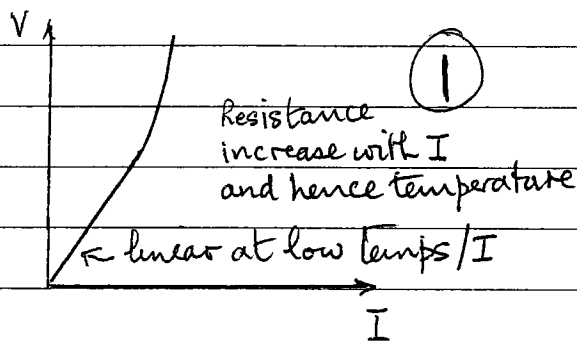 V
1
Resistance
increase with I
and hence temperature
← linear at low temps/I
I